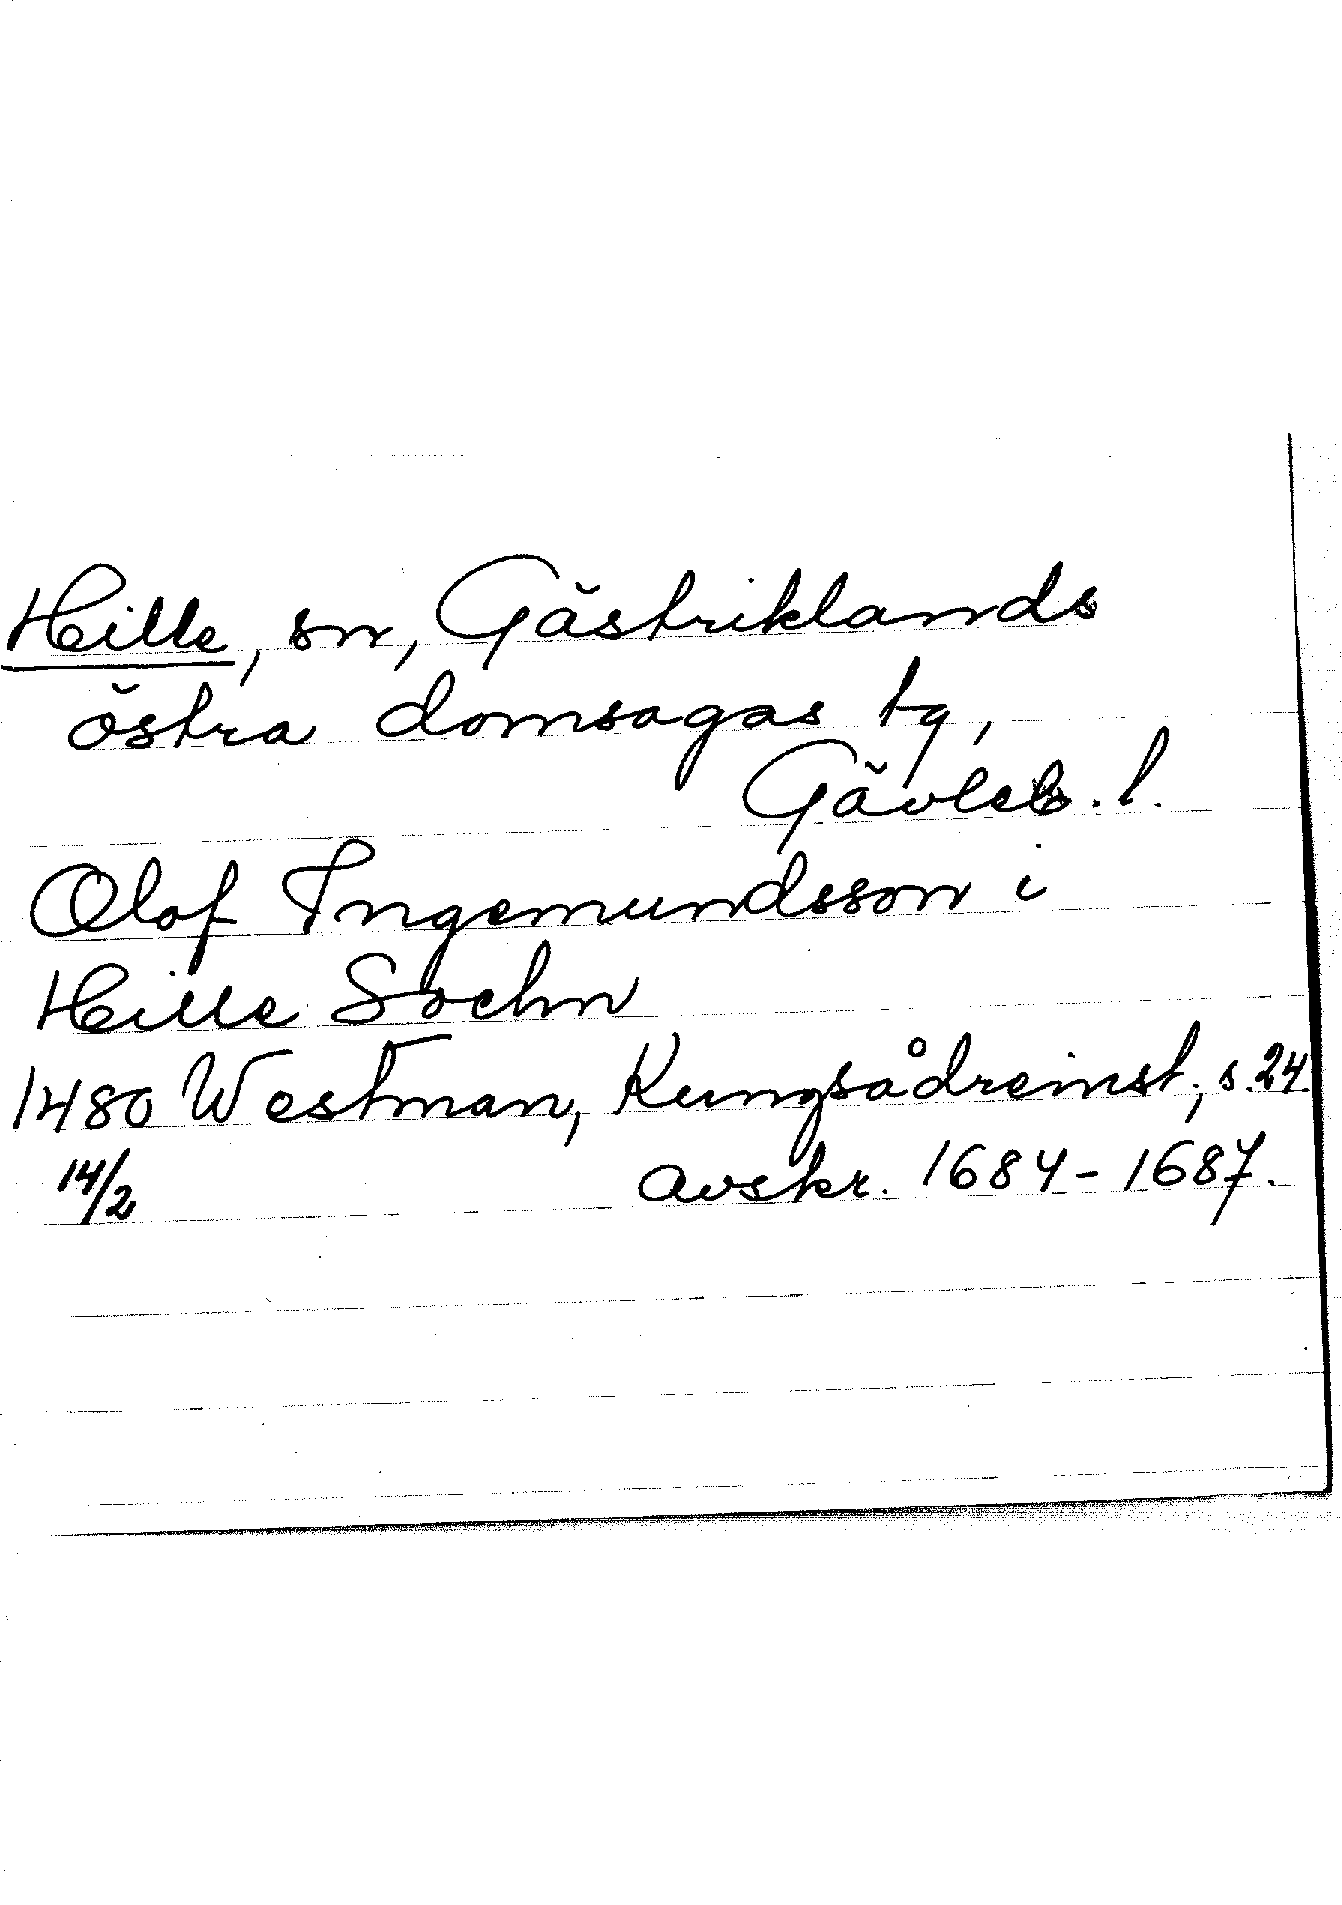 Hille, sn, Gästriklands
östra domsagas tg,
Gävleb. l.
Olof Ingemundsson i
Hille Sochn
1480 Westman, Kungsådreinst., s. 24
14/2 avskr. 1684-1687.